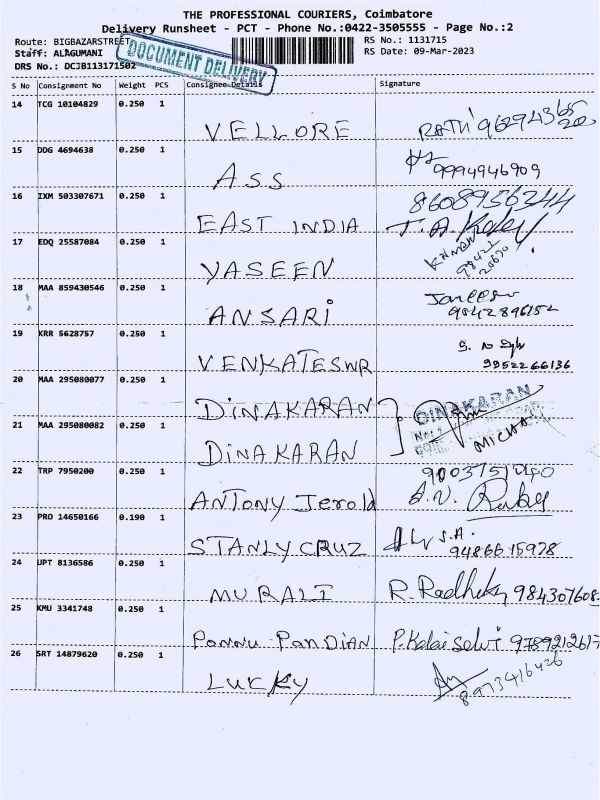 THE PROFESSIONAL COURIERS, Coimbatore
Delivery Runsheet - PCT - Phone No.:0422-3505555 - Page No.:2
Route: BIGBAZARSTREET
RS No.: 1131715
Staff: ALAGUMANI
RS Date: 09-Mar-2023
DRS No.: DCJB113171502
DOCUMENT DELIVERY
S No Consignment No Weight PCS Consignee Details Signature
14 TCG 10104829 0.250 1
VELLORE
15 DDG 4694638 0.250 1
ASS 9994946909
16 IXM 503307671 0.250 1 8608956344
EAST INDIA
17 EDQ 25587084 0.250 1
YASEEN
18 MAA 859430546 0.250 1
ANSARI 9042896152
19 KRR 5628757 0.250 1
VENKATESWR 9952266136
20 MAA 295080077 0.250 1
DINAKARAN DINAKARAN
21 MAA 295080082 0.250 1
DINAKARAN
22 TRP 7950200 0.250 1
ANTONY Jerold
23 PRO 14650166 0.190 1
STANLY CRUZ 9486615978
24 UPT 8136586 0.250 1
MURALI R. Radhika
25 KMU 3341748 0.250 1
PONNU PANDIAN P. Kalai Selvi
26 SRT 14879620 0.250 1
LUCKY 8973416426